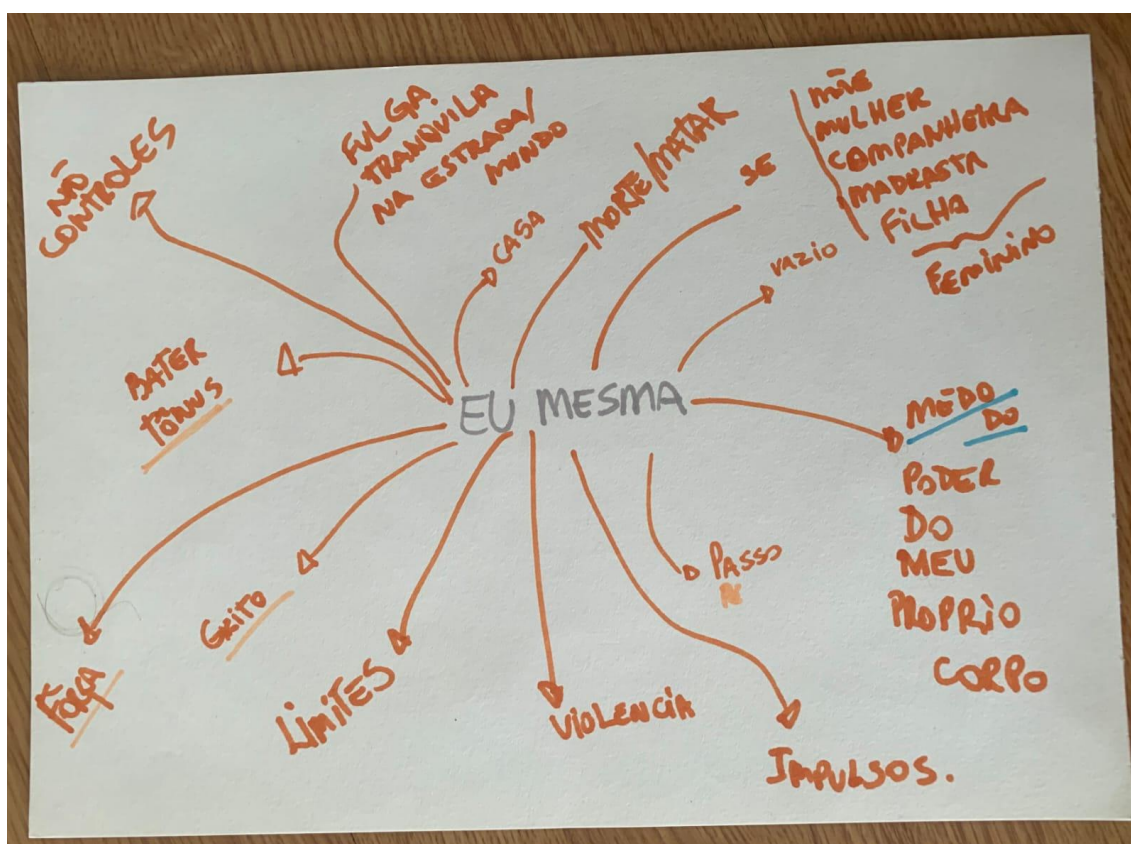 NÃO
CONTROLES
FULGA
TRANQUILA
NA ESTRADA/
MUNDO
CASA
MORTE/MATAR
SE
MÃE
MULHER
COMPANHEIRA
MADRASTA
FILHA
FEMININO
VAZIO
BATER
TÔNUS
EU MESMA
MEDO
DO
PODER
DO
MEU
PROPRIO
CORPO
PASSO
GRITO
FORÇA
LIMITES
VIOLENCIA
IMPULSOS.